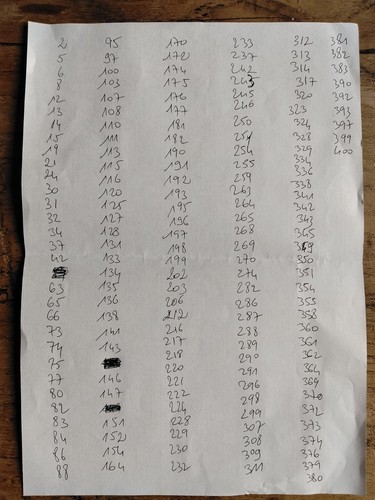 2
5
6
8
12
13
14
15
19
21
24
30
31
32
34
37
42
63
65
66
73
74
75
77
80
82
83
84
86
88
95
97
100
103
107
108
110
111
113
115
116
120
125
127
128
131
133
134
135
136
138
141
143
146
147
151
152
154
164
170
172
174
175
176
177
181
182
190
191
192
193
195
196
197
198
199
202
203
206
212
216
217
218
220
221
222
224
228
229
230
232
233
237
242
243
245
246
250
251
254
255
259
263
264
265
268
269
270
274
282
286
287
288
289
290
291
296
298
299
307
308
309
311
312
313
314
317
320
323
324
328
329
334
336
338
341
342
343
345
349
350
351
354
355
358
360
361
362
364
369
370
372
373
374
376
379
380
381
382
383
390
392
393
397
399
400